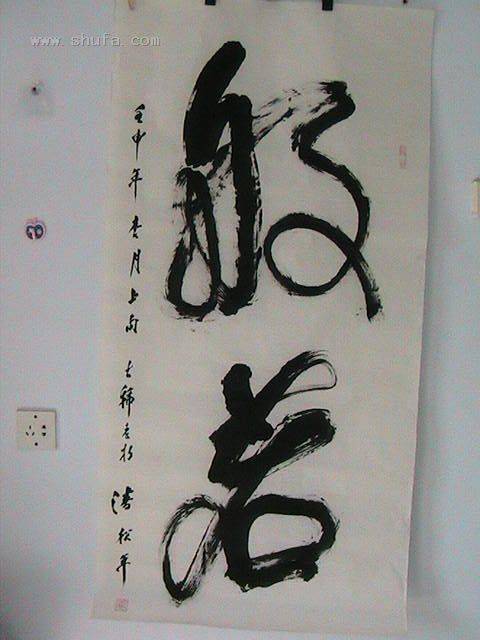 www.shufa.com
般若
壬申年 月上旬 清松年